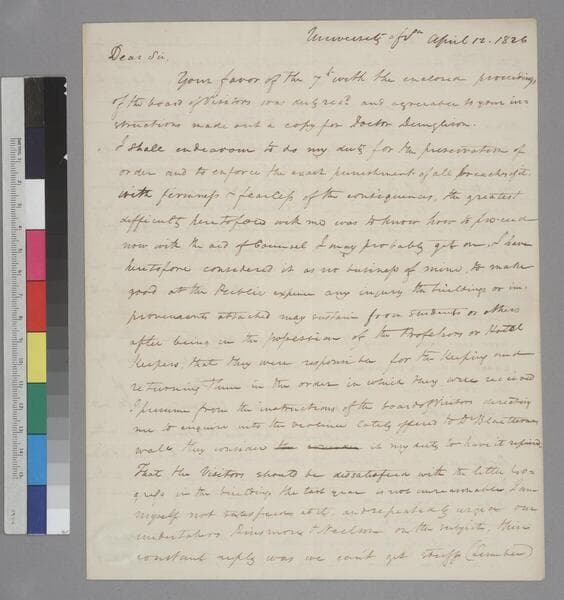 University of Va April 12. 1826
Dear Sir,
Your favor of the 7th with the enclosed proceedings
of the board of Visitors was duly recd. and agreeable to your in-
structions made out a copy for Doctor Dunglison.
I shall endeavour to do my duty for the preservation of
order and to enforce the exact punishment of all breaches of it
with firmness & fearless of the consequences, the greatest
difficulty heretofore with me was to know how to proceed
now with the aid of Counsel I may probably get on. I have
heretofore considered it as no business of mine, to make
good at the Public expence any injury the buildings or im-
provements attached may sustain from students or others
after being in the possession of the Professors or Hotel
Keepers, that they were responsible for the keeping and
returning them in the order in which they were received
I presume from the instructions of the board of Visitors directing
me to enquire into the violence lately offered to Dr Blaettermans
walls, they consider it my duty to have it repaired,
That the Visitors should be dissatisfied with the little pro-
gress in the buildings the last year is not unreasonable, I am
myself not satisfied with, and repeatedly urged our
undertakers Dinsmore & Neilson on the subject, their
constant reply was we cant get stuff (Lumber)